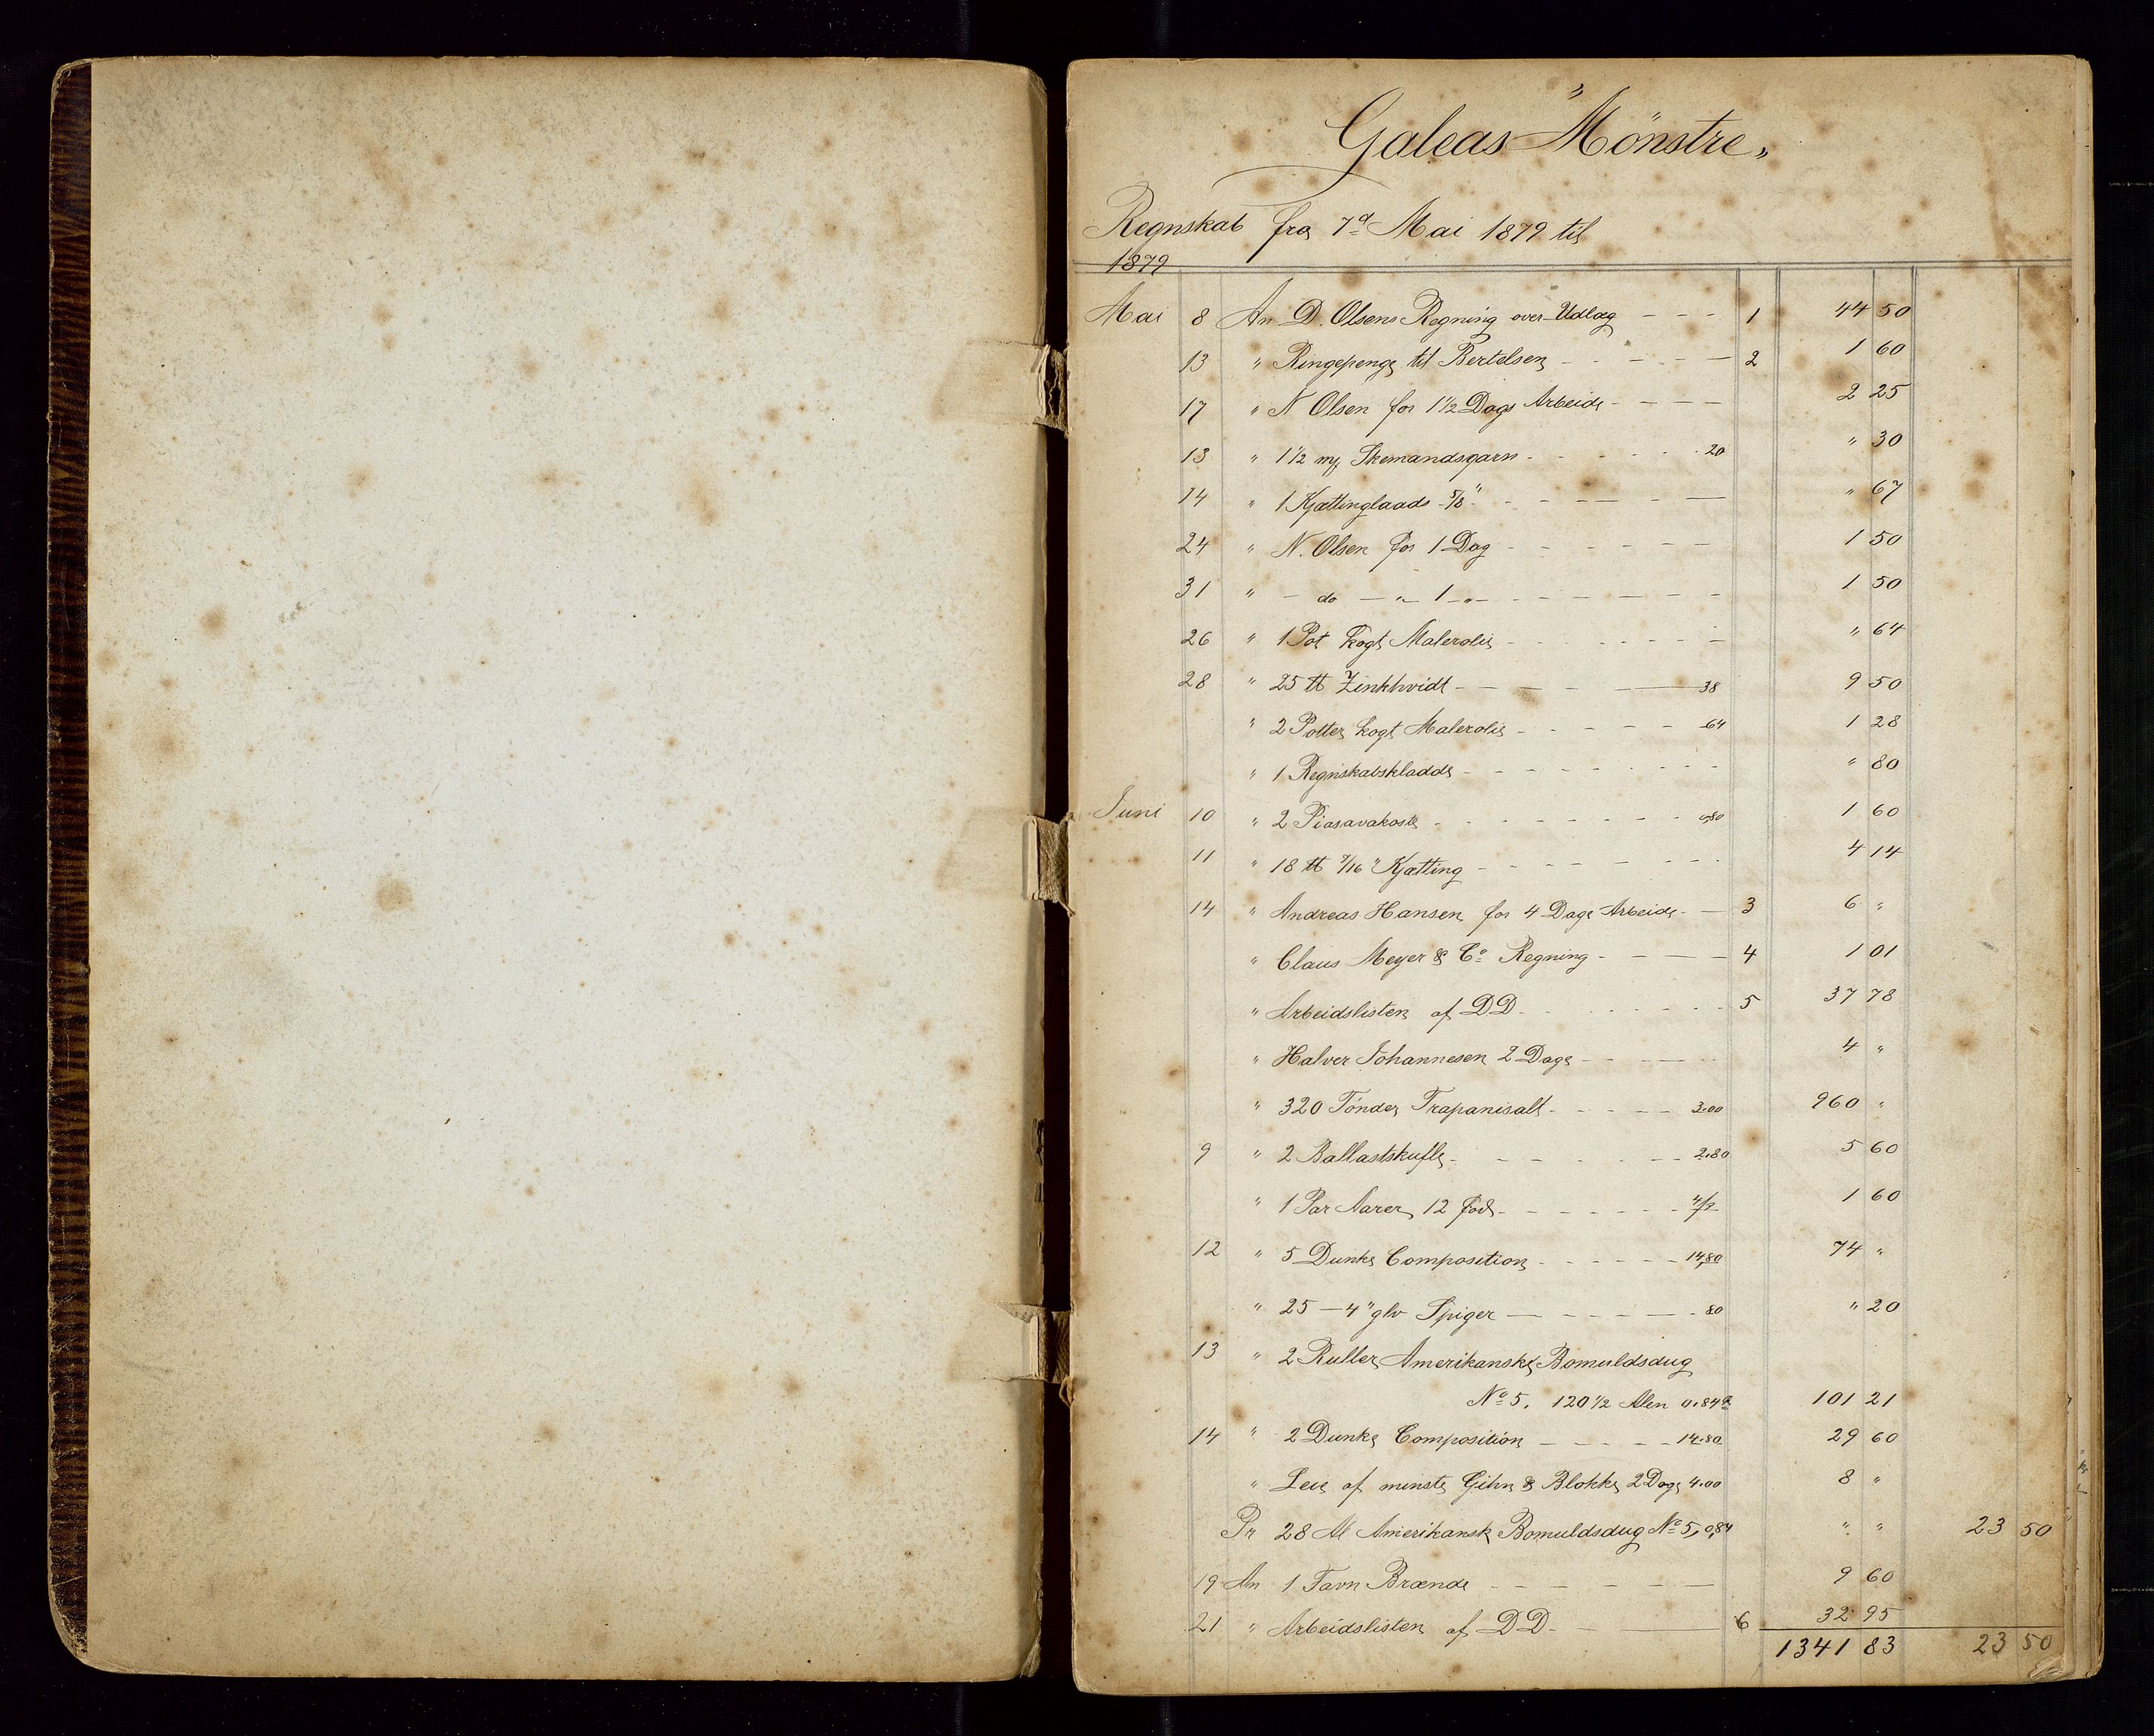 Galeas "Mönstre„
Regnskab fra 7d Mai 1879 til
1879
Mai 8 An D. Olsens Regning over Udlæg - - - 1 44 50
13 " Ringepenge til Bertelsen - - - - 2 1 60
17 " N Olsen for 1 1/2 Dags Arbeide - - - 2 25
13 " 1 1/2 Skemandsgarn - - - - 20 " 30
14 " 1 Kjættinglaads 5/8" - - - - " 67
24 " N. Olsen for 1 Dag - - - - 1 50
31 " - do - " 1 - " - - - - - 1 50
26 " 1 Pot kogt Malerolie - - - - " 64
28 " 25 ℔ Zinkhvidt - - - - 38 9 50
" 2 Potter kogt Malerolie - - - - 64 1 28
" 1 Regnskabskladde - - - - " 80
Juni 10 " 2 Piasavakoste - - - - 0,80 1 60
11 " 18 ℔ 7/16" Kjætting - - - - 4 14
14 " Andreas Hansen for 4 Dage Arbeide - - 3 6 "
" Claus Meyer & Co Regning - - - - 4 1 01
" Arbeidslisten af DD - - - - 5 37 78
" Halver Johannesen 2 Dage - - - 4 "
" 320 Tönder Trapanisalt - - - - 3.00 960 "
9 " 2 Ballastskufle - - - - 2.80 5 60
" 1 Par Aarer 12 fod - - - - 1 60
12 " 5 Dunke Composition - - - - 14,80 74 "
" 25 - 4" glv Spiger - - - - 80 " 20
13 " 2 Ruller Amerikanske Bomuldsdug
No 5. 120 1/2 Alen 0.84 101 21
14 " 2 Dunke Composition - - - - 14.80 29 60
" Leie af minste Gihn & Blokke 2 Dage 4.00 8 "
Pr 28 Al Amerikansk Bomuldsdug No 5, 0,84 " " 23 50
19 An 1 Favn Brænde - - - - 9 60
21 " Arbeidslisten af DD - - - 6 32 95
1341 83 23 50